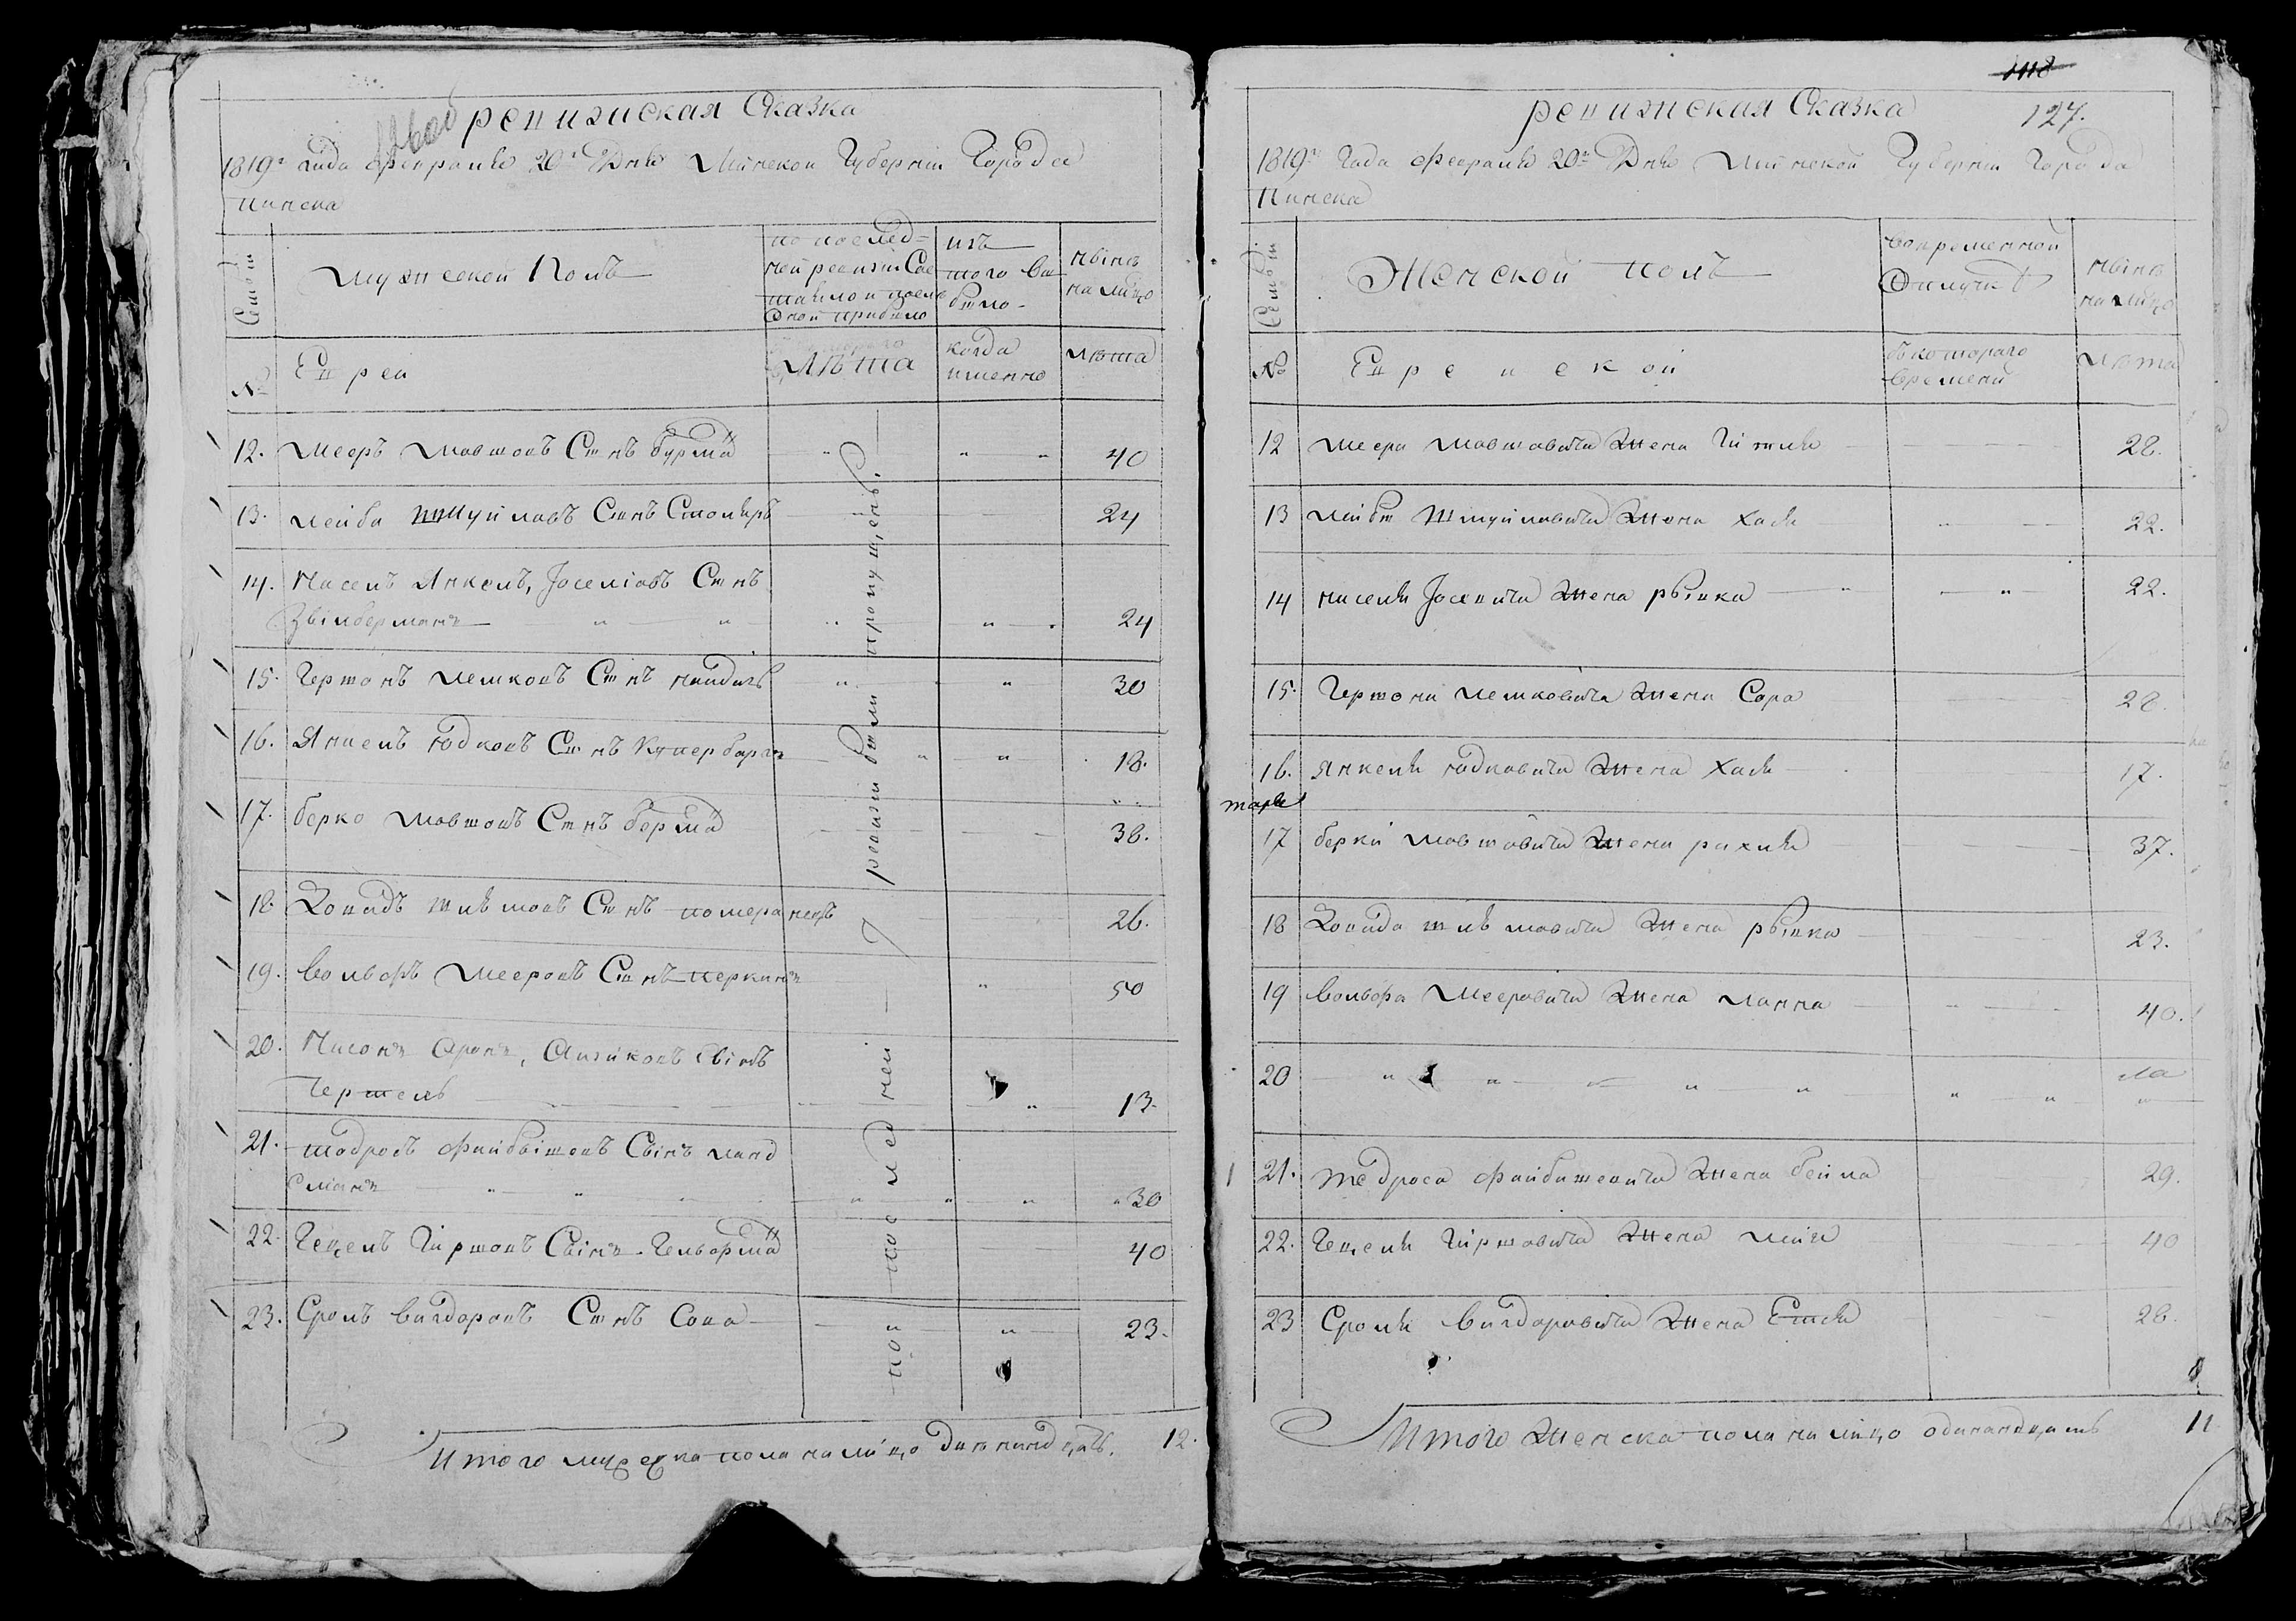 ревизская Сказка
1819г Года февраля 20г Дня Минской Губернии Города
Пинска
Семьи
Мужеской Полъ
по послед-
ней ревизіи Сос
тояло и после
оной прибыло
изъ
того вы
было
ныне
на лицо
№
Евреи
Лета
когда
именно
лета
12. Мееръ Мовшовъ Сынъ Бурма 40
13. Лейба Шмуйловъ Сынъ Столяръ 24
14. Нисель Янкель, Іоселіовъ Сынъ
Звилберманъ 24
15. Гершонъ Лешковъ Сынъ 30
16. Янкель Юдковъ Сынъ Купербаргъ 18.
17. Берко Мовшовъ Сынъ Борма 38.
18. Сынъ померанецъ 26.
19. Вольфъ Мееровъ Сынъ Перкинъ 50
20. Нисонъ Аронъ, Айзиковъ Сынъ
Гершель 13.
21. Тодросъ Файбышовъ Сынъ Ланд
сманъ 30
22. Гецель Гиршовъ Сынъ 40
23. Сроль Вигдоровъ Сынъ Сова 23.
по последней ревизіи были пропущены.
Итого мужеска пола на лицо двенандцать. 12.
1118
127.
ревизская Сказка
1819г Года февраля 20г Дня Минской Губернии Города
Пинска
Семьи
Женской полъ
Вовременной
Отлучке
ныне
на лицо
№
Еврейской
Съ котораго
времени
Лета
12 Меера Мовшовича Жена Гитля 28.
13 Лейбы Шмуйловича Жена Хася 22.
14 Ниселя Іосевича Жена рывка 22.
15. Гершона Лешковича Жена Сора 28.
16. Янкеля Юдковича Жена Хася 17.
17 Берки Мовшовича Жена рахля 37.
18 Жена рывка 23.
19 Вольфа Мееровича Жена Ланна 40.
20
21. Тодроса Файбишевича Жена Бейла 29.
22. Гецеля Гиршовича Жена 40
23 Сроля Вигдоровича Жена 28.
Итого Женска пола на лицо одинандцать 11